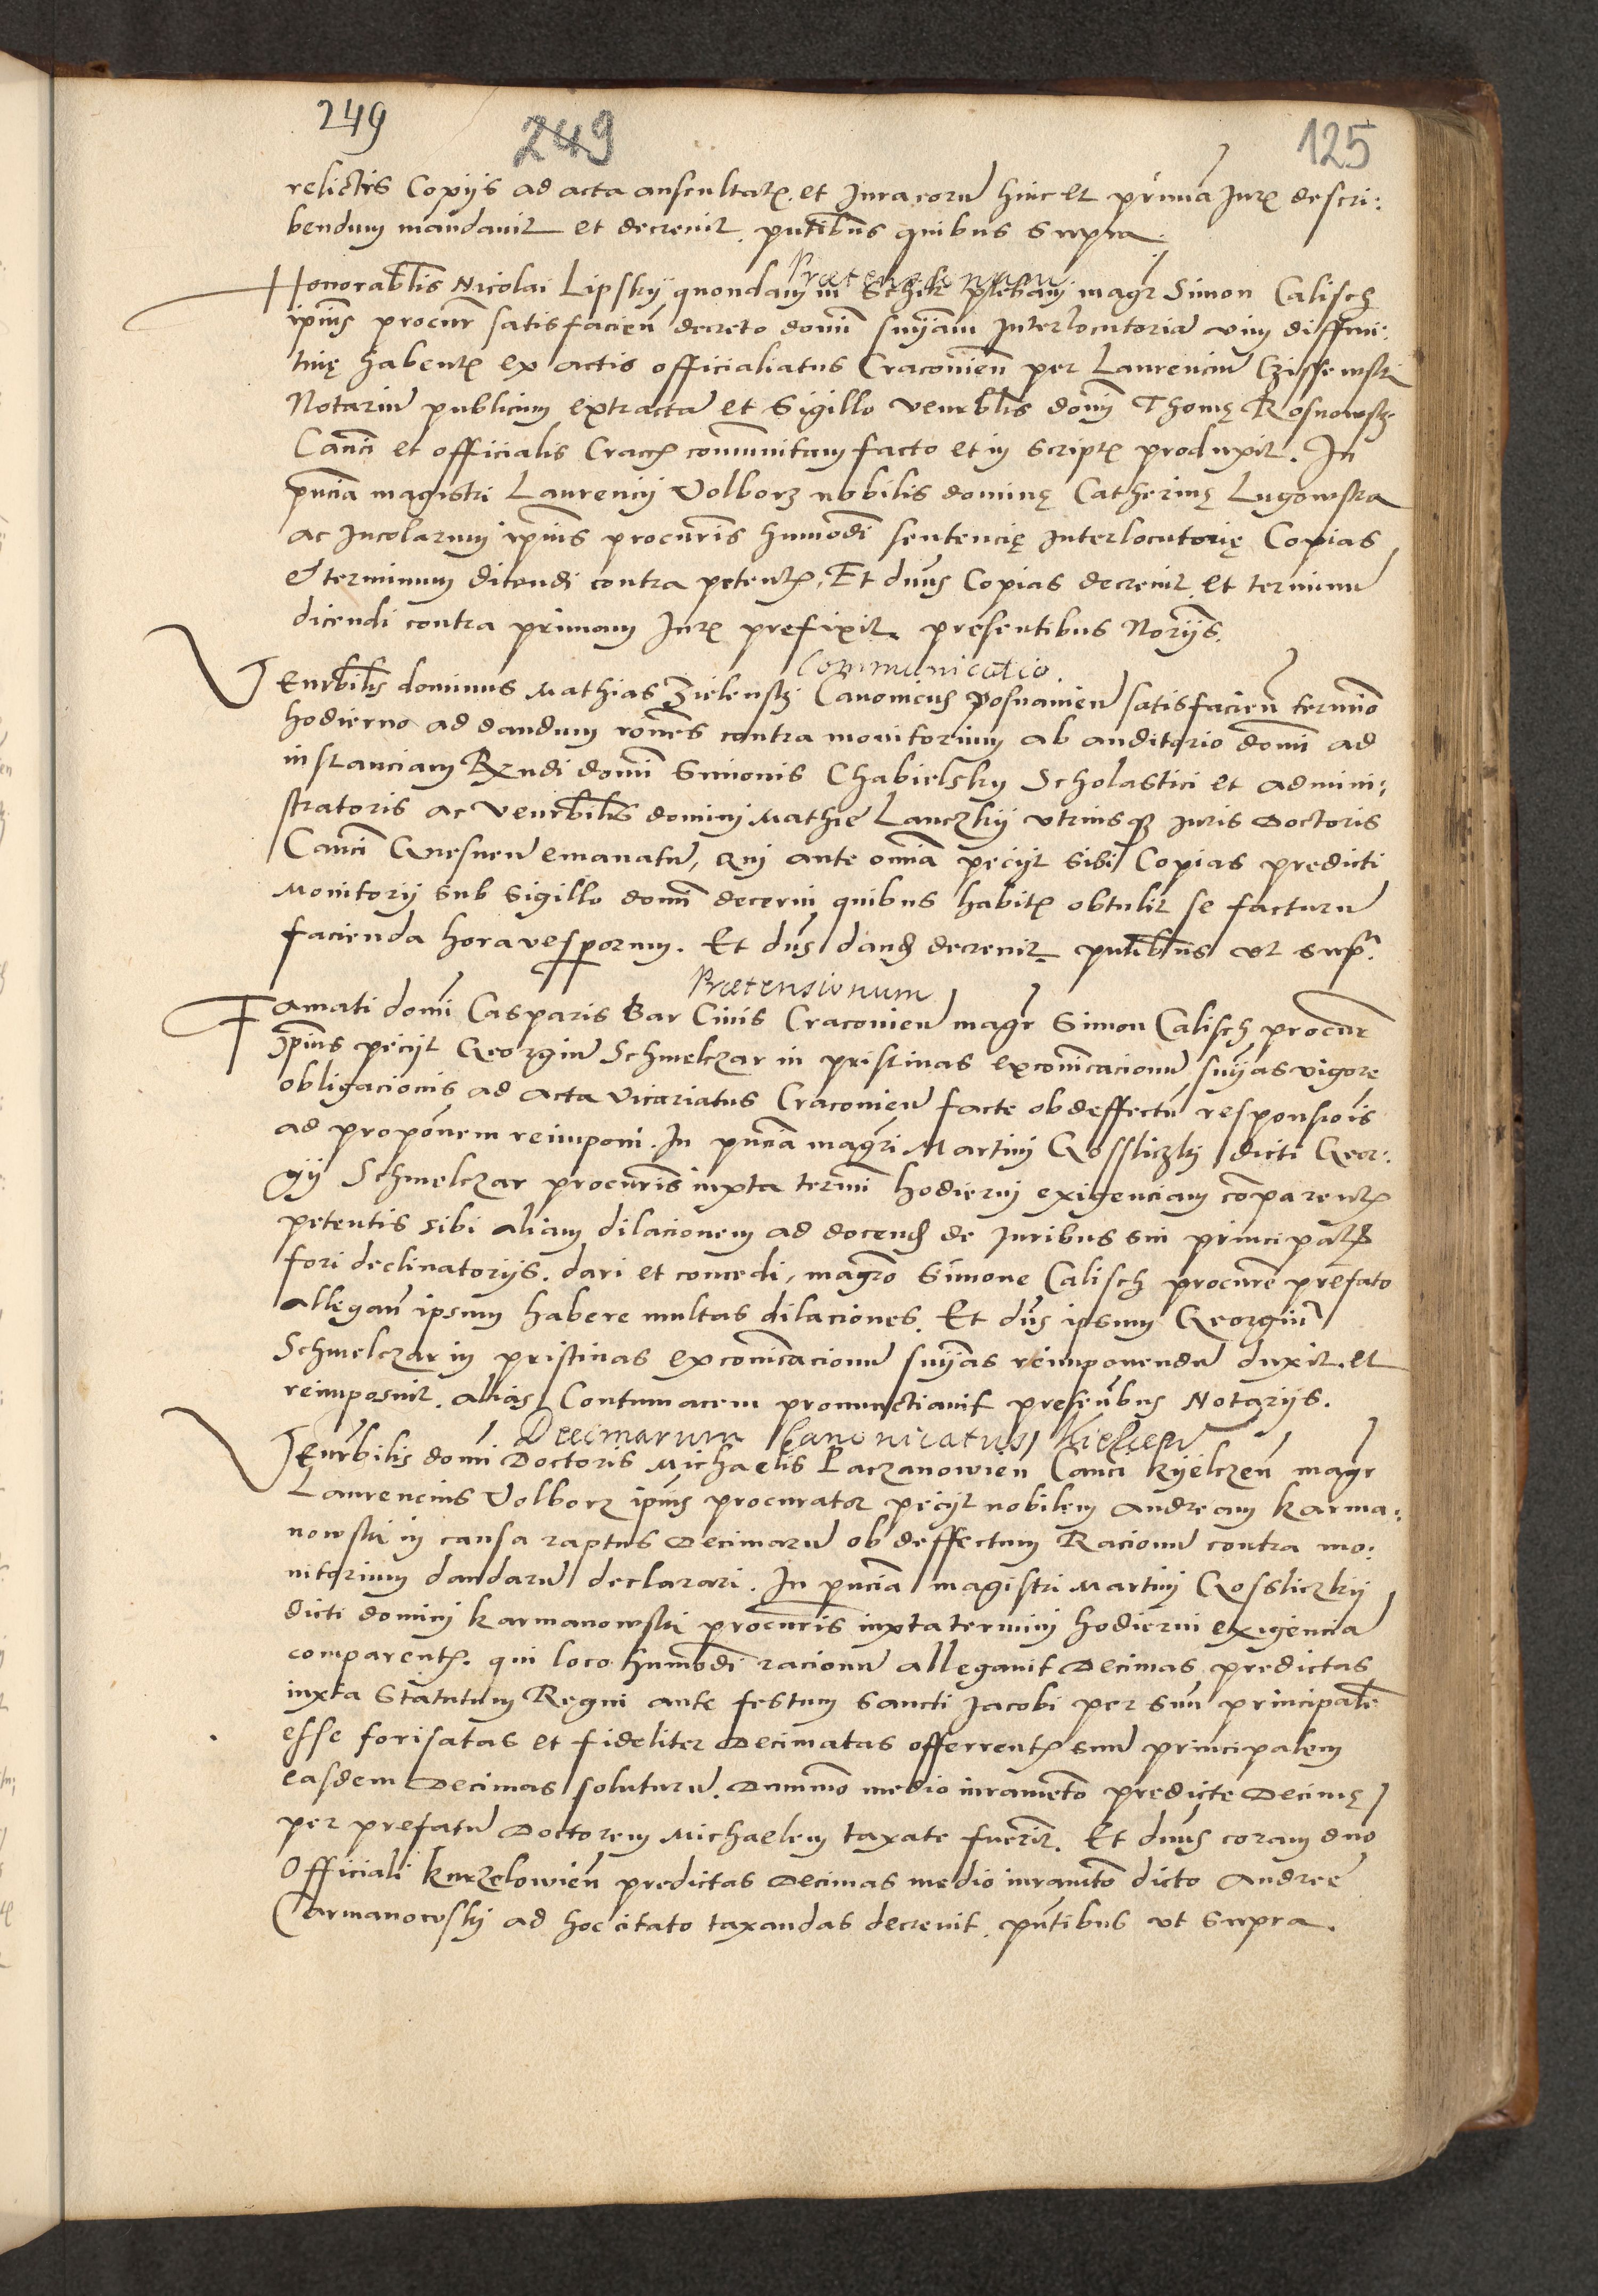 249
249
125
relictis Copijs ad acta auscultatis et Jura eorum hinc et primam Juris descri:
bendum mandavit et decrevit. pntibus quibus supra.
Pretensionum
Honorabilis Nicolai Lipskij quondam in plebani magr Simon Calisch
ipius procur satisfacien decreto domi snyam Interlocutoria vim diffini:
tiuę haben ex actis officialiatus Cracovien per Laurenciu
Notariu publicum extracta et Sigillo venrblis domi Thomę Rosnowsk
Canci et officialis Cracc communitum facto et in scriptis produxit. In
pncia magistri Laurencij Volborz nobilis dominę Catherinę Lugowska
ac Incolarum ipius procuris humodi sentencię Interlocutorię Copias
& terminum dicendi contra peten. Et dnus Copias decrevit et terminu
dicendi contra primam Juris prefixit presentibus Norijs.
Communicatio.
Venrbilis dominus Mathias Zielensky Canonicus Posnanien satisfacien termino
hodierno ad dandum rones contra monitorium ab auditorio domi ad
instanciam Rxndi domi Simonis Chabielsky Scholastici et admini:
stratoris ac venrbilis domini Mathie Lanczkij vtriusq Juris Doctoris
Canci Gnesnen emanatu, qui ante omnia pecijt sibi Copias predicti
Monitorij sub sigillo domi decerni quibus habitis obtulit se facturu
facienda hora vesperorum. Et dns dand decrevit pntibus vt supra.
Pretensionum
Famati domi Casparis Bar Civis Cracovien magr Simon Calisch procur
ipius pecijt Georgiu Schmelczar in pristinas excomicacionu snyas vigore
obligacionis ad acta vicariatus Cracovien facte ob deffectu responsiois
ad proponem reimponi. In pncia magri Martini Gossliczky dicti Geor:
gij Schmelczar procuris iuxta termi hodierni exigenciam comparen
petentis sibi aliam dilacionem ad docend de Juribus sui principalis
fori declinatorijs. dari et concedi, magro Simone Calisch procure prefato
allegan ipsum habere multas dilaciones. Et dns ipsum Georgiu
Schmelczar in pristinas excomicacionu snyas reimponendu duxit et
reimposuit. alias Contumacem pronunctiavit presentibus Notarijs.
Decimarum Canonicatus Kielcen
Venrbilis domi Doctoris Michaelis Paczanowien Canci Kijelczen magr
Laurencius Volborz ipius procurator pecijt nobilem Andream Karma:
nowski in causa raptus Decimaru ob deffectum Racionu contra mo:
nitorium dandaru declarari. In pncia magistri Martini Gossliczkij
dicti domini Karmanowski procuris iuxta termini hodierni exigencia
comparentis. qui loco humodi racionu allegavit Decimas predictas
iuxta Statutum Regni ante festum Sancti Jacobi per suu principale
esse forisatas et fideliter Decimatas offerrentis suu principalem
easdem Decimas soluturu. Dummo medio iuramento predicte Decimę
per prefatu Doctorem Michaelem taxate fuerint. Et dnus coram dno
Officiali Kurzelowien predictas Decimas medio iuramto dicto Andree
Carmanowskij ad hoc citato taxandas decrevit. pntibus vt supra.